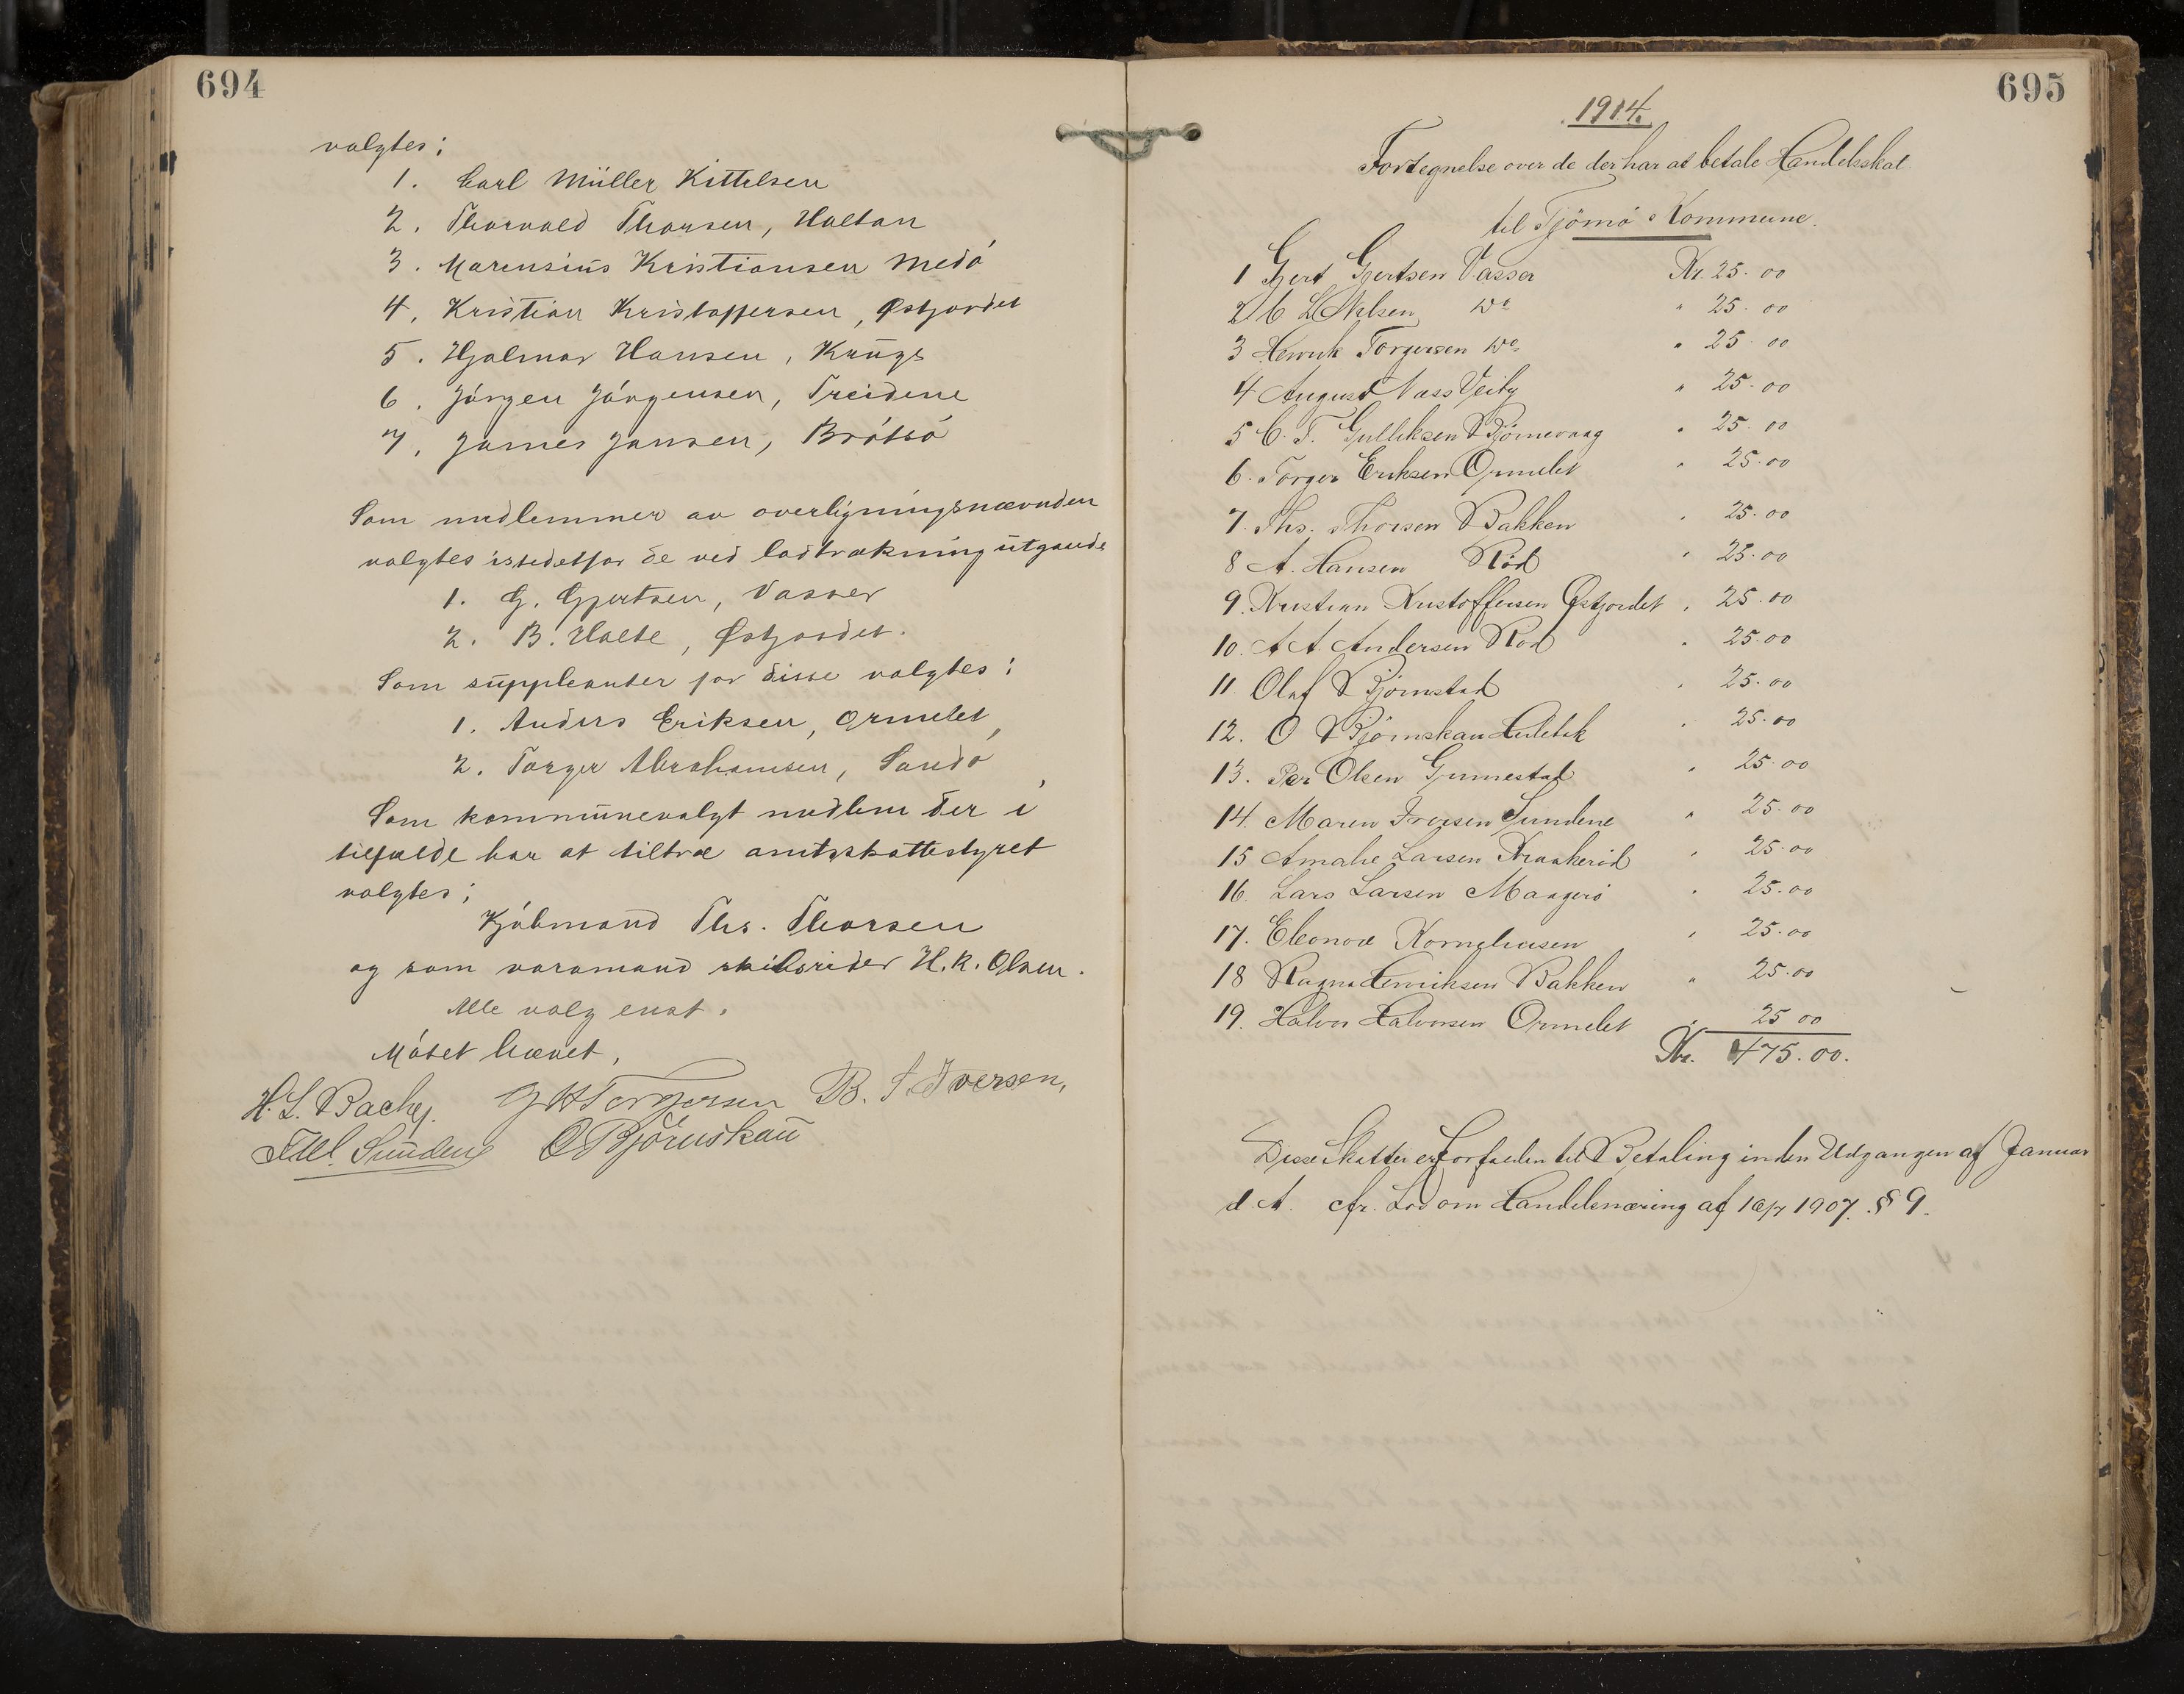 694
valgtes:
1. Carl Müller Kittelsen
2. Thorvald Thorsen, Haltan
3. Marensius Kristiansen Medö
4. Kristian Kristoffersen, Østjordet
5. Hjalmar Hansen, Krüge
6. Jörgen Jörgensen, Treidene
7. James Jansen, Bröttsö
Som medlemmer av overligningsnævnden
valgtes istedetfor de ved lodtrækning utgaaede
1. G. Gjertsen, Vasser
2. B. Holte, Østjordet.
Som suppleanter for disse valgtes:
1. Anders Eriksen, Ormelet,
2. Torger Abrahamsen, Sandö
Som kommunevalgt medlem der i
tilfælde har at tiltræ amtsskattestyret
valgtes:
Kjöbmand Ths. Thorsen
og som varamand skibsrider H. K. Olsen.
Alle valg enst.
Mötet hævet.
H. L. Bache. G H Torgersen B. I Iversen,
Sundene O Bjørnskau
695
1914.
Fortegnelse over de der har at betale Handelsskat
til Tjömö Kommune.
1 Gjert Gjertsen Vasser Kr. 25.00
2 C L Nilsen Do " 25.00
3 Henrik Torgersen Do " 25.00
4 August Nass Veiby " 25.00
5 C. T. Gulliksen Bjørnevaag " 25.00
6. Torger Eriksen Ormelet " 25.00
7. Ths. Thorsen Bakken " 25.00
8 A. Hansen Röd " 25.00
9. Kristian Kristoffersen Østjordet " 25.00
10. A A Andersen Röd " 25.00
11 Olaf Bjørnstad " 25.00
12. O Bjørnskau Hulebk " 25.00
13. Per Olsen Grimestad " 25.00
14. Maren Iversen Sundene " 25.00
15 Amalie Larsen Kraakeröd " 25.00
16. Lars Larsen Maagerö " 25.00
17. Eleonore Korneliusen " 25.00
18 Ragna Henriksen Bakken " 25.00
19. Halvor Halvorsen Ormelet " 25 00
Kr. 475.00.
Disse Skatter er forfalden til Betaling inden Udgangen af Januar
d. A. cfr. Lov om Handelsnæring af 1907. § 9.